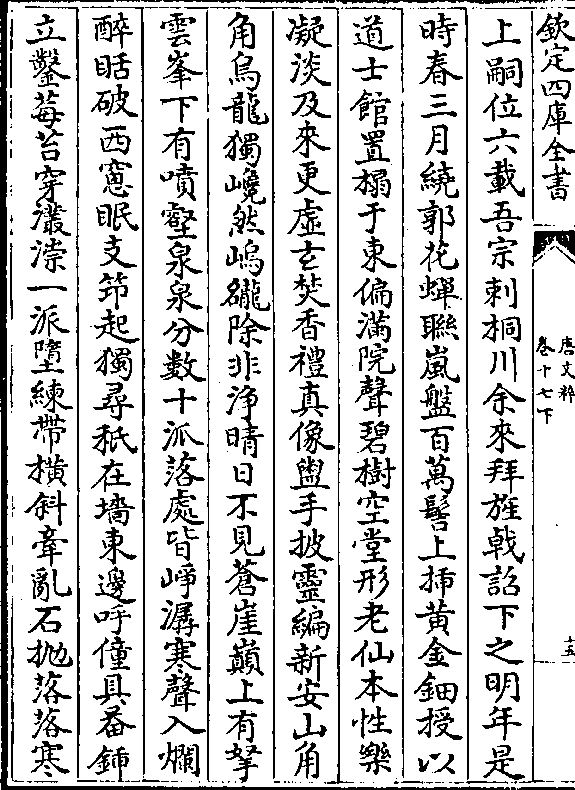 欽定四庫全書
唐文粹
卷十七下
十五
上嗣位六載吾宗刺桐川余來拜旌㦸詔下之明年是
時春三月繞郭花蟬聯嵐盤百萬髻上揷黄金鈿授以
道士館置榻于東偏滿院聲碧樹空堂形老仙本性樂
凝淡及來更虚𤣥焚香禮真像盥手披靈編新安山角
角烏龍獨巉然嵨㠣除非浄晴日不見蒼崖巔上有拏
雲峯下有噴壑泉泉分數十派落處皆崢潺寒聲入爛
醉聒破西窻眠支筇起獨尋秪在墻東邊呼僮具畚鍤
立鑿莓苔穿灇漴一派墮練帶横斜牽亂石抛落落寒